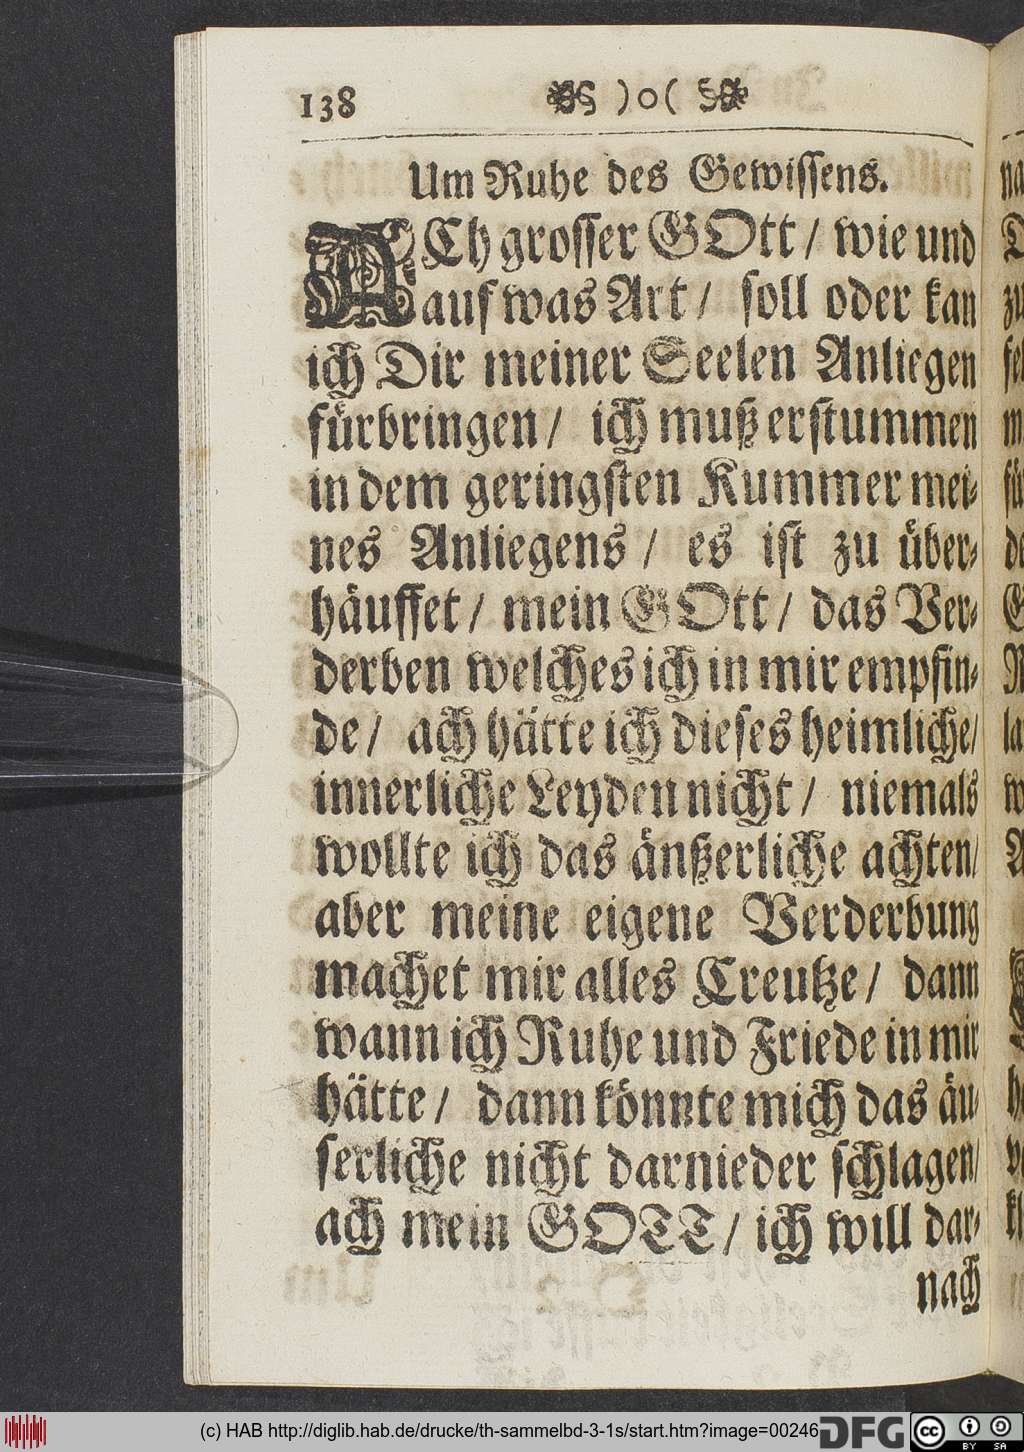 138 )o(
Um Ruhe des Gewissens.
ACh grosser GOtt / wie und
auf was Art / soll oder kan
ich Dir meiner Seelen Anliegen
fürbringen / ich muß erstummen
in dem geringsten Kummer mei-
nes Anliegens / es ist zu über-
häuffet / mein GOtt / das Ver-
derben welches ich in mir empfin-
de / ach hätte ich dieses heimliche /
innerliche Leyden nicht / niemals
wollte ich das änßerliche achten /
aber meine eigene Verderbung
machet mir alles Creutze / dann
wann ich Ruhe und Friede in mir
hätte / dann könnte mich das äu-
serliche nicht darnieder schlagen /
ach mein GOTT / ich will dar-
nach
(c) HAB http://diglib.hab.de/drucke/th-sammelbd-3-1s/start.htm?image=00246
DFG
cc BY SA